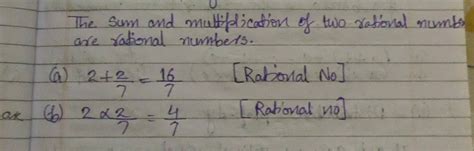 The sum and multiplication of two rational numbe
are rational numbers.
(a) 2+2/7 = 16/7 [Rational No]
(b) 2×2/7 = 4/7 [Rational no]